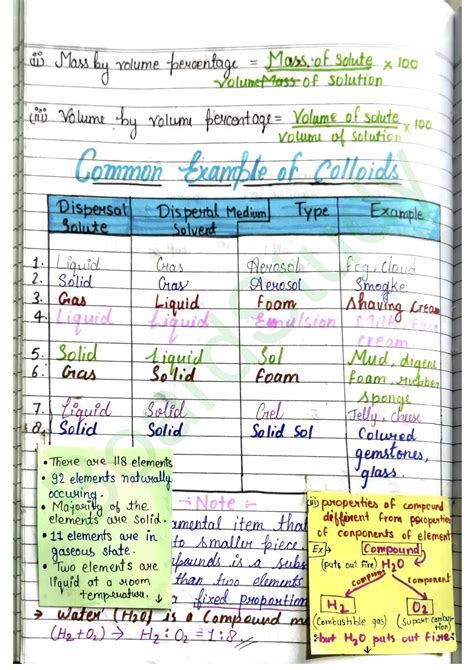 (ii) Mass by volume percentage = Mass of solute × 100
Volume Mass of solution
(iii) Volume by volume percentage = Volume of solute × 100
Volume of solution
Common Example of Colloids
Dispersal Solute | Dispersal Medium Solvent | Type | Example
1. Liquid | Gas | Aerosol | Fog, cloud
2. Solid | Gas | Aerosol | Smogke
3. Gas | Liquid | Foam | Shaving Cream
4. Liquid | Liquid | Emulsion | Milk, Face
cream
5. Solid | Liquid | Sol | Mud,
6. Gas | Solid | Foam | foam, rubber
sponge
7. Liquid | Solid | Gel | Jelly, cheese
8. Solid | Solid | Solid Sol | Coloured
gemstones,
glass
• There are 118 elements
• 92 elements naturally
occuring.
• Majority of the
elements are solid.
• 11 elements are in
gaseous state.
• Two elements are
liquid at a room
temperature. ↓
Note
amental item that
to smaller piece.
pounds is a subs
than two elements
fixed proportion
→ Water (H2O) is a Compound m
(H2+O2) → H2:O2 = 1:8
(iii) properties of compound
different from properties
of components of element
Ex→ Compound
(puts out fire) H2O
component component
H2 O2
(Combustible gas) (Support combustion)
but H2O puts out fire
BoardStudy